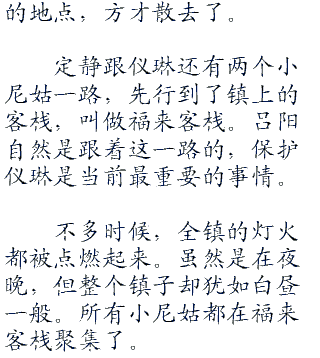 的地点，方才散去了。
定静跟仪琳还有两个小
尼姑一路，先行到了镇上的
客栈，叫做福来客栈。吕阳
自然是跟着这一路的，保护
仪琳是当前最重要的事情。
不多时候，全镇的灯火
都被点燃起来。虽然是在夜
晚，但整个镇子却犹如白昼
一般。所有小尼姑都在福来
客栈聚集了。